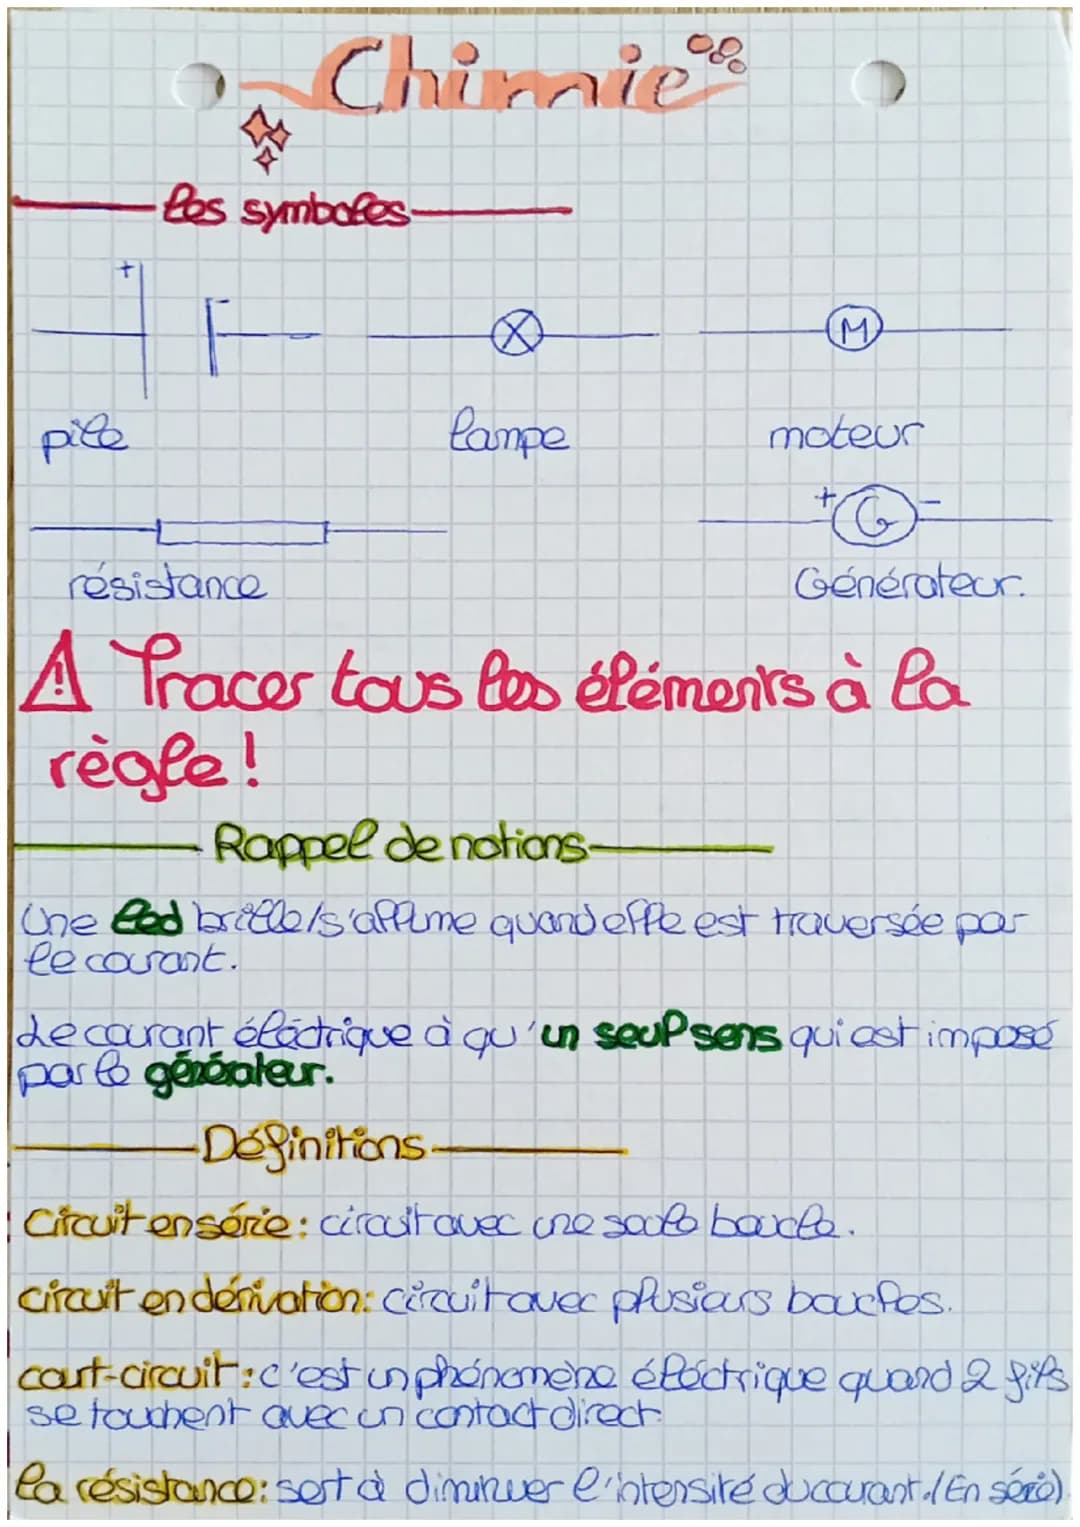 Chimie
Les symboles
+
M
pile lampe moteur
+ G -
résistance Générateur.
⚠ Tracer tous les éléments à la
règle !
Rappel de notions
Une led brille/s'allume quand elle est traversée par
le courant.
Le courant éléctrique à qu'un seul sens qui est imposé
par le générateur.
Définitions
Circuit en série : circuit avec une seule boucle.
circuit en dérivation : circuit avec plusieurs boucles.
court-circuit : c'est un phénomène éléctrique quand 2 fils
se touchent avec un contact direct.
la résistance : sert à diminuer l'intensité du courant. (En série)